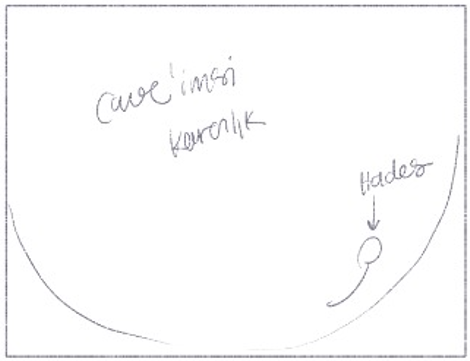 Cave'imsi
karanlık
Hades